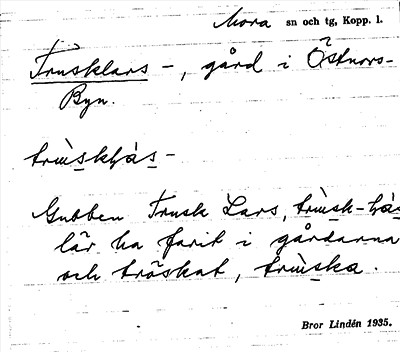 Mora sn och tg, Kopp. l.
Trusklars -, gård i Östnors-
Byn.
trùskḷàs -
Gubben Trusk Lars, trùsk-ḷàs
lär ha farit i gårdarna
och tröskat, trùska.
Bror Lindén 1935.